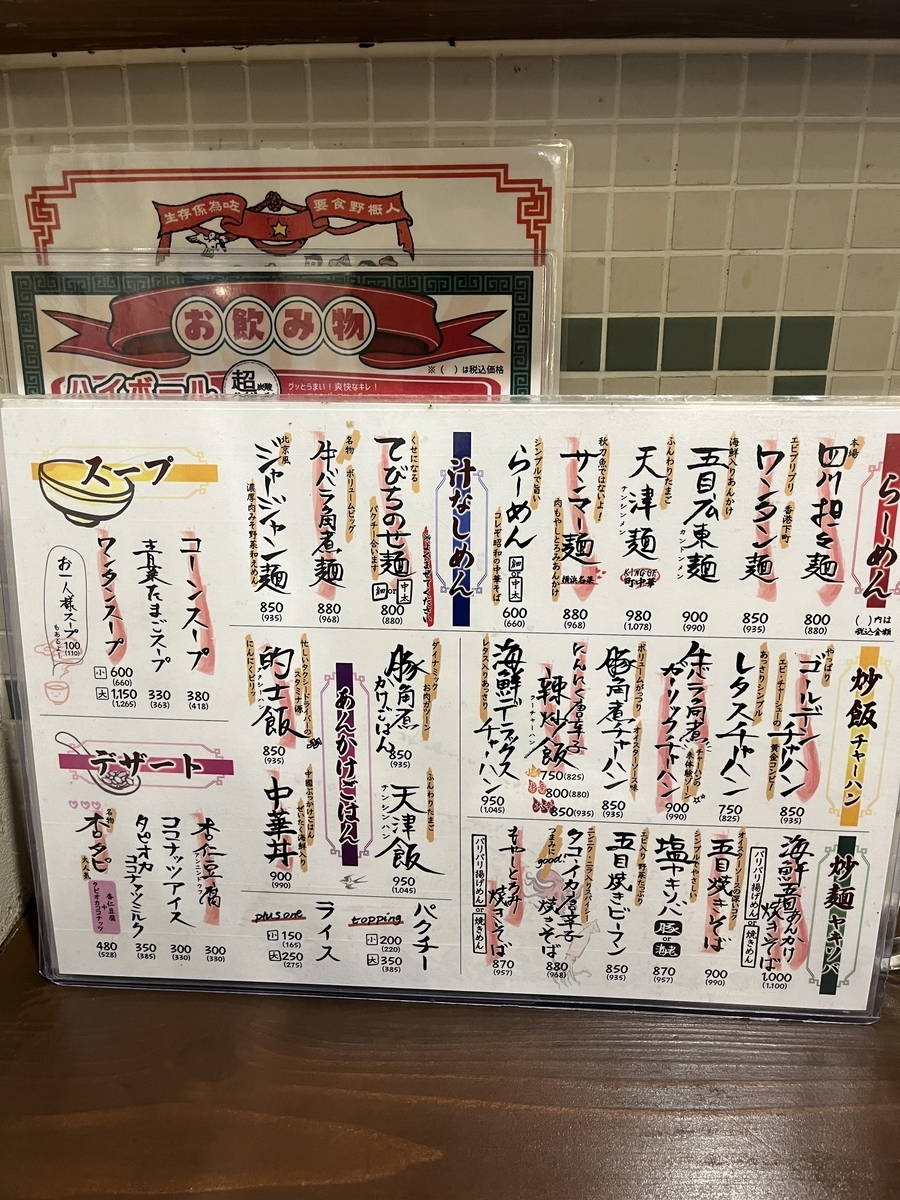 生存係為咗
要食野概人
お飲み物
※( )は税込価格
ハイボール
超
グッとうまい！爽快なキレ！
らーめん
( )内は
税込金額
本場
四川担々麺
800
(880)
エビプリプリ
香港下町
ワンタン麺
850
(935)
海鮮入りあんかけ
五目広東麺
カントンメン
900
(990)
ふんわりたまご
天津麺
テンシンメン
KING OF
町中華
980
(1,078)
秋刀魚ではないよ！
サンマー麺
肉もやしとろみあんかけ
横浜名菜
880
(968)
シンプルで旨い
らーめん
コレぞ昭和の中華そば
細or中太
600
(660)
汁なしめん
くせになる
てびちのせ麺
パクチー合います
細or中太
よくまぜてください
800
(880)
名物 ボリュームビッグ
牛バラ角煮麺
880
(968)
北京風
ジャージャン麺
濃厚肉みそ野菜和えめん
850
(935)
スープ
コーンスープ
380
(418)
青菜たまごスープ
330
(363)
ワンタンスープ
小 600
(660)
大 1,150
(1,265)
お一人様スープ
もあるよ！
100
(110)
炒飯 チャーハン
やっぱり
ゴールデンチャーハン
エビ・チャーシューの黄金コンビ！
850
(935)
あっさりシンプル
レタスチャーハン
750
(825)
牛バラ角煮
ガーリックチャーハン
チャーハンの
未体験ゾーン
900
(990)
ボリュームがっつり
豚角煮チャーハン
オイスターソース味
850
(935)
にんにく唐辛子
辣炒飯
ラーチャーハン
750(825)
800(880)
850(935)
海鮮デラックスチャーハン
レタス入りあっさり
950
(1,045)
あんかけごはん
ダイナミック
お肉ガツーン
豚角煮
かけごはん
850
(935)
ふんわりたまご
天津飯
テンシンハン
950
(1,045)
忙しいタクシードライバーの
スタミナ源
的士飯
にんにくピリッ
850
(935)
中国ぶっかけごはん
ぜいたく海鮮入り
中華丼
900
(990)
topping
パクチー
小 200
(220)
大 350
(385)
plus one
ライス
小 150
(165)
大 250
(275)
デザート
杏仁豆腐
アンニンドウフ
300
(330)
ココナッツアイス
300
(330)
タピオカ
ココナッツミルク
350
(385)
名物
杏タピ
大人気
杏仁豆腐
+
タピオカココナッツ
480
(528)
炒麺 ヤキソバ
海鮮五目あんかけ
焼きそば
パリパリ揚げめん or 焼きめん
1,000
(1,100)
オイスターソースの深いコク
五目焼きそば
900
(990)
シンプルでやさしい
塩ヤキソバ
豚
or
海老
870
(957)
エビ入り野菜たっぷり
五目焼きビーフン
850
(935)
ニンニク・ニラ入りスパイシー
タコイカ唐辛子
焼きそば
つまみに
good!
880
(968)
もやしとろみ
焼きそば
パリパリ揚げめん or 焼きめん
870
(957)